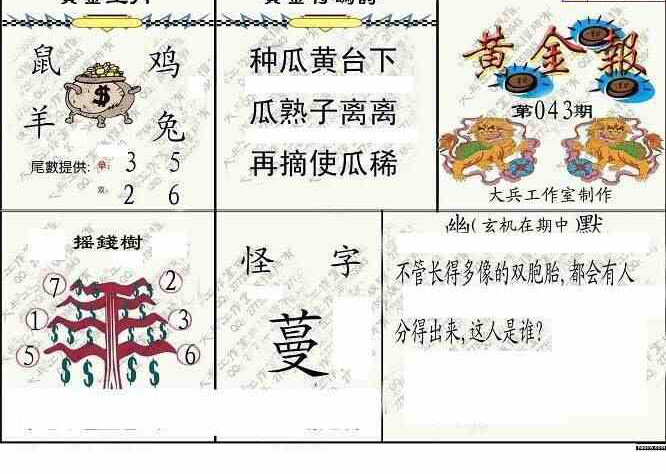 种瓜黄台下
瓜熟子离离
再摘使瓜稀
鼠 鸡
$
羊 兔
尾數提供: 单: 3 5
双: 2 6
黄金報
第043期
大兵工作室制作
摇錢樹
7 2
1 3
5 6
怪 字
蔓
幽(玄机在期中)默
不管长得多像的双胞胎,都会有人
分得出来,这人是谁?